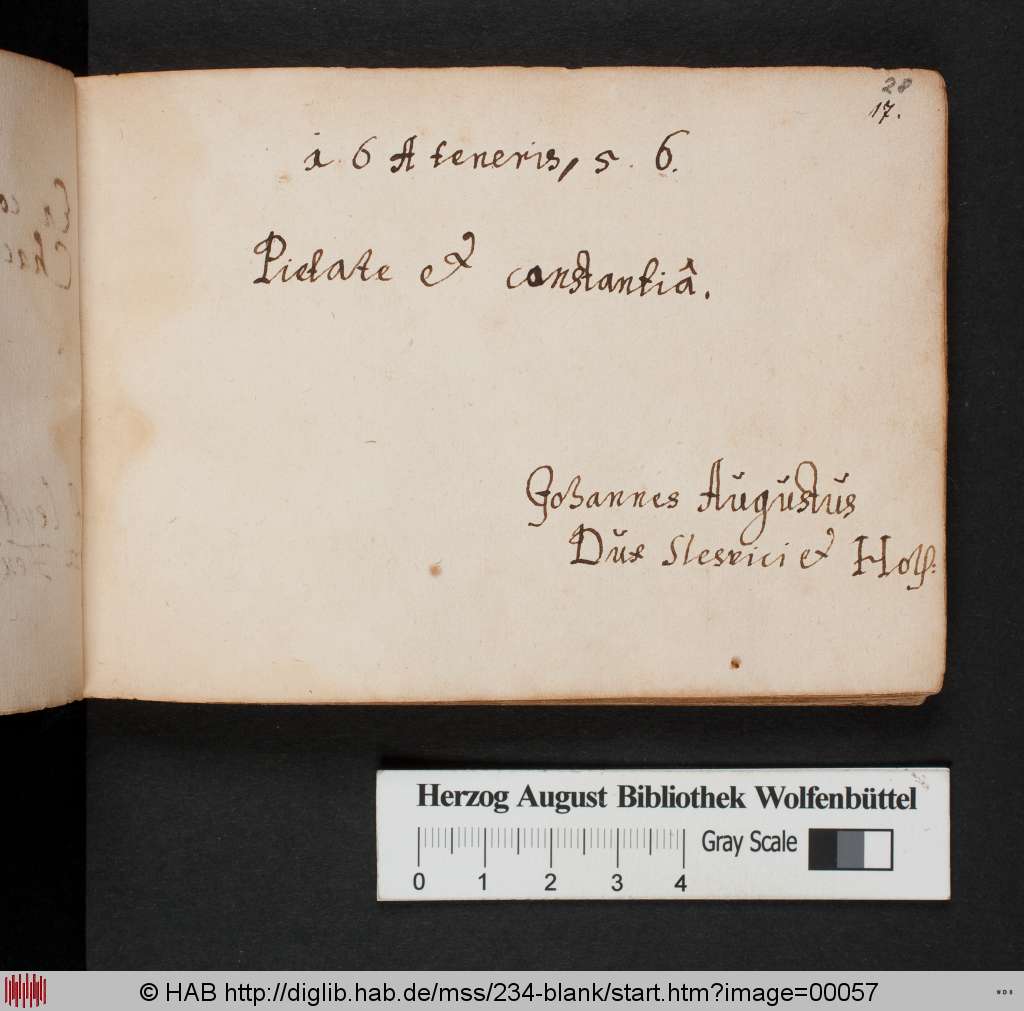 28
17.
1. 6 A teneris, 5. 6.
Pietate et constantiâ.
Johannes Augŭstŭs
Dŭx Slesvici et Hols:
Herzog August Bibliothek Wolfenbüttel
Gray Scale
0 1 2 3 4
© HAB http://diglib.hab.de/mss/234-blank/start.htm?image=00057